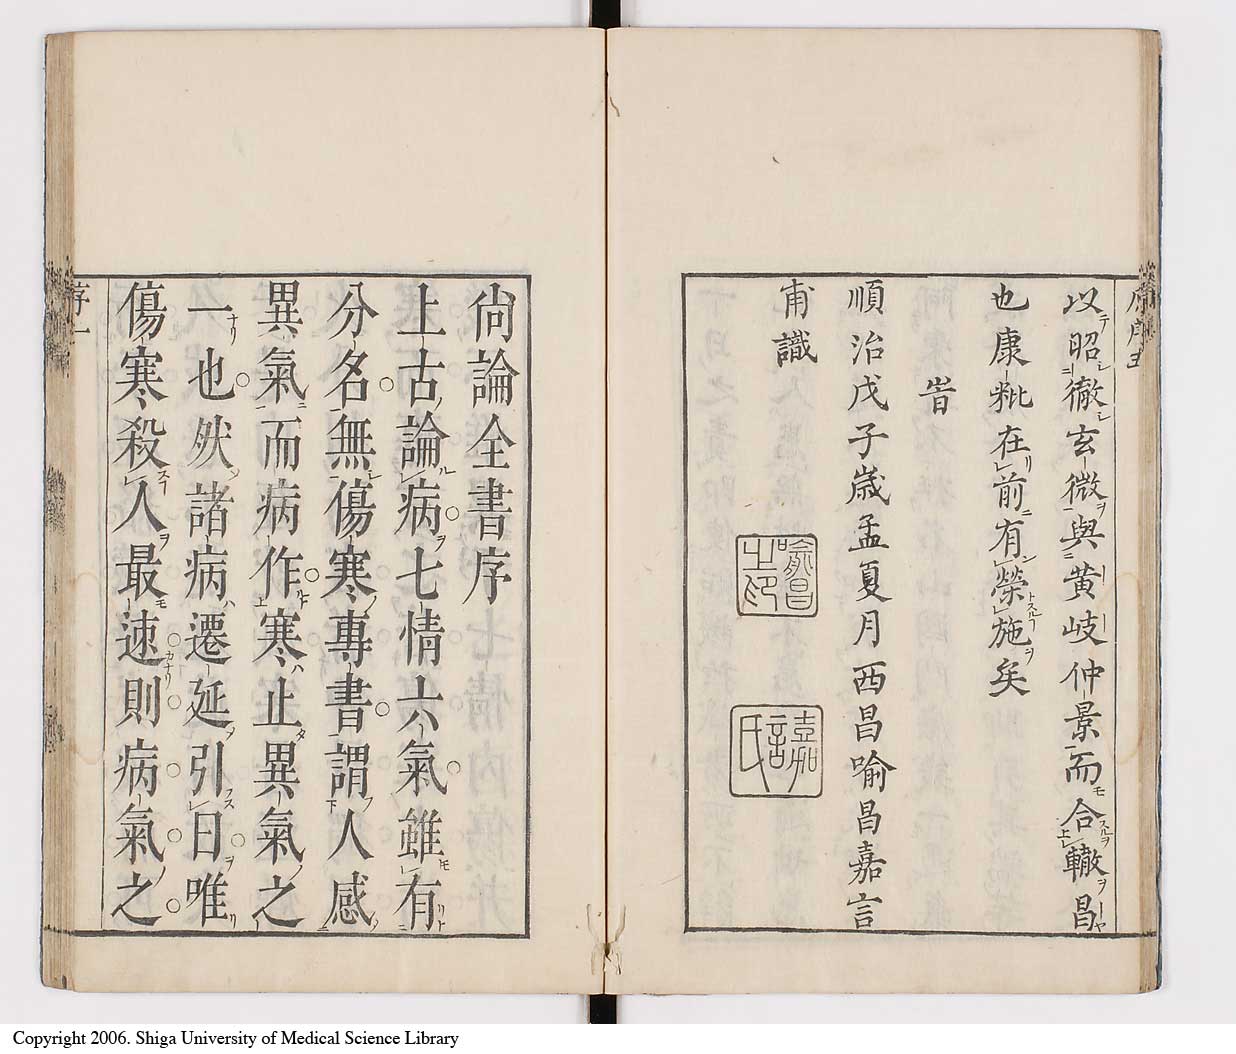 以昭徹玄微與黄岐仲景而合轍昌
也康粃在前有榮施矣
旹
順治戊子歲孟夏月西昌喻昌嘉言
甫識
喻昌之印
嘉言氏
尚論全書序
上古論病七情六氣雖有
分名無傷寒專書謂人感
異氣而病作寒止異氣之
一也然諸病遷延引日唯
傷寒殺人最速則病氣之
序一
Copyright 2006. Shiga University of Medical Science Library